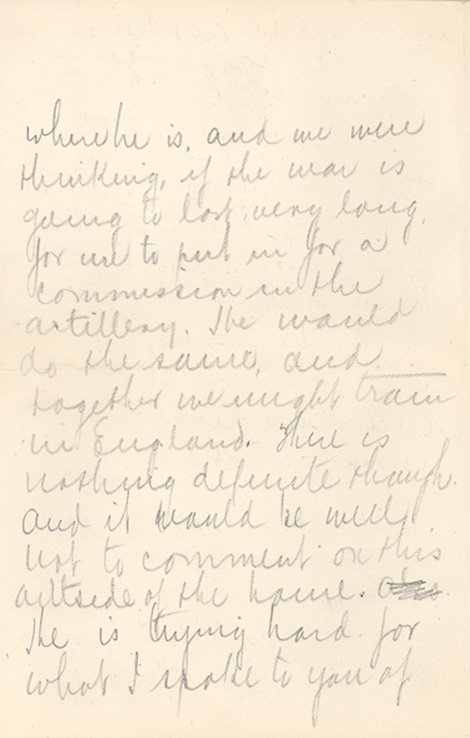 where he is, and we were
thinking, if the war is
going to last very long,
for me to put in for a
commission in the
artillery. He would
do the same, and
together we might train
in England. There is
nothing definite though.
And it would be well
not to comment on this
outside of the home.
He is trying hard for
what I spoke to you of